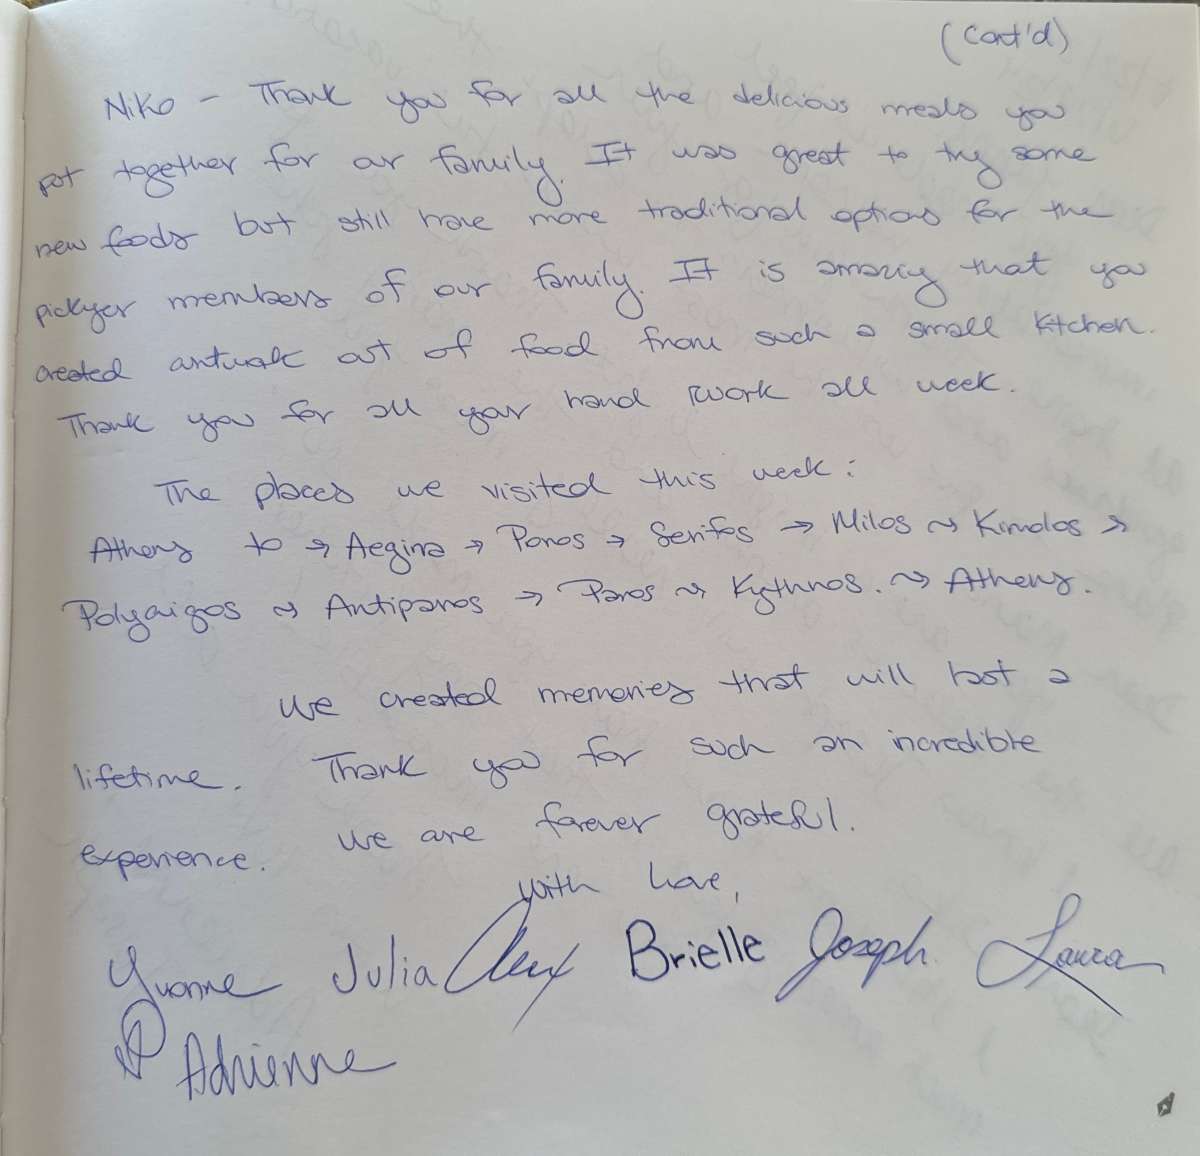 (Cont'd)
Niko - Thank you for all the delicious meals you
put together for our family. It was great to try some
new foods but still have more traditional options for the
pickyer members of our family. It is amazing that you
created artwork out of food from such a small kitchen.
Thank you for all your hard work all week.
The places we visited this week:
Athens to → Aegina → Poros → Serifos → Milos → Kimolos →
Polyaigos → Antiparos → Paros → Kythnos. → Athens.
We created memories that will last a
lifetime. Thank you for such an incredible
experience. We are forever grateful.
With love,
Yvonne Julia Alex Brielle Joseph Laura
Adrienne